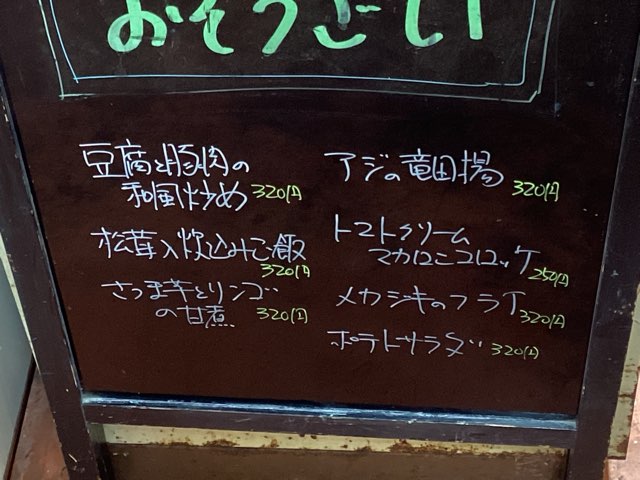 おそうざい
豆腐と豚肉の
和風炒め 320円
松茸入炊込みご飯
320円
さつま芋とリンゴ
の甘煮 320円
アジの竜田揚
320円
トマトクリーム
マカロニコロッケ
250円
メカジキのフライ
320円
ポテトサラダ 320円